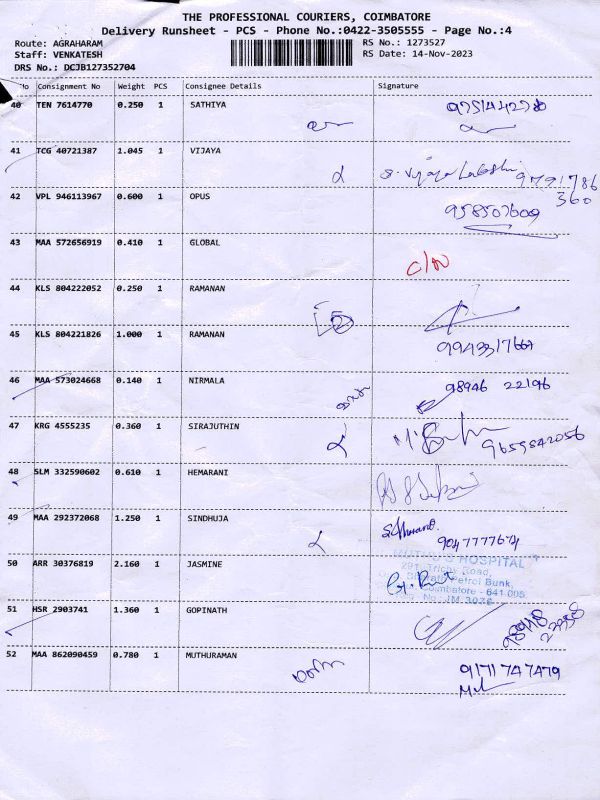 THE PROFESSIONAL COURIERS, COIMBATORE
Delivery Runsheet - PCS - Phone No.:0422-3505555 - Page No.:4
Route: AGRAHARAM
RS No.: 1273527
Staff: VENKATESH
RS Date: 14-Nov-2023
DRS No.: DCJB127352704
No Consignment No Weight PCS Consignee Details Signature
40 TEN 7614770 0.250 1 SATHIYA
41 TCG 40721387 1.045 1 VIJAYA
S. Vijaya Lakshmi 9791786
360
42 VPL 946113967 0.600 1 OPUS
958507609
43 MAA 572656919 0.410 1 GLOBAL
C/N
44 KLS 804222052 0.250 1 RAMANAN
45 KLS 804221826 1.000 1 RAMANAN
46 MAA 573024668 0.140 1 NIRMALA
98946 22196
47 KRG 4555235 0.360 1 SIRAJUTHIN
9659542056
48 SLM 332590602 0.610 1 HEMARANI
49 MAA 292372068 1.250 1 SINDHUJA
9047777674
50 ARR 30376819 2.160 1 JASMINE
HOSPITAL
291, Trichy Road,
Petrol Bunk,
Coimbatore - 641 005
51 HSR 2903741 1.360 1 GOPINATH
52 MAA 862090459 0.780 1 MUTHURAMAN
9171747479